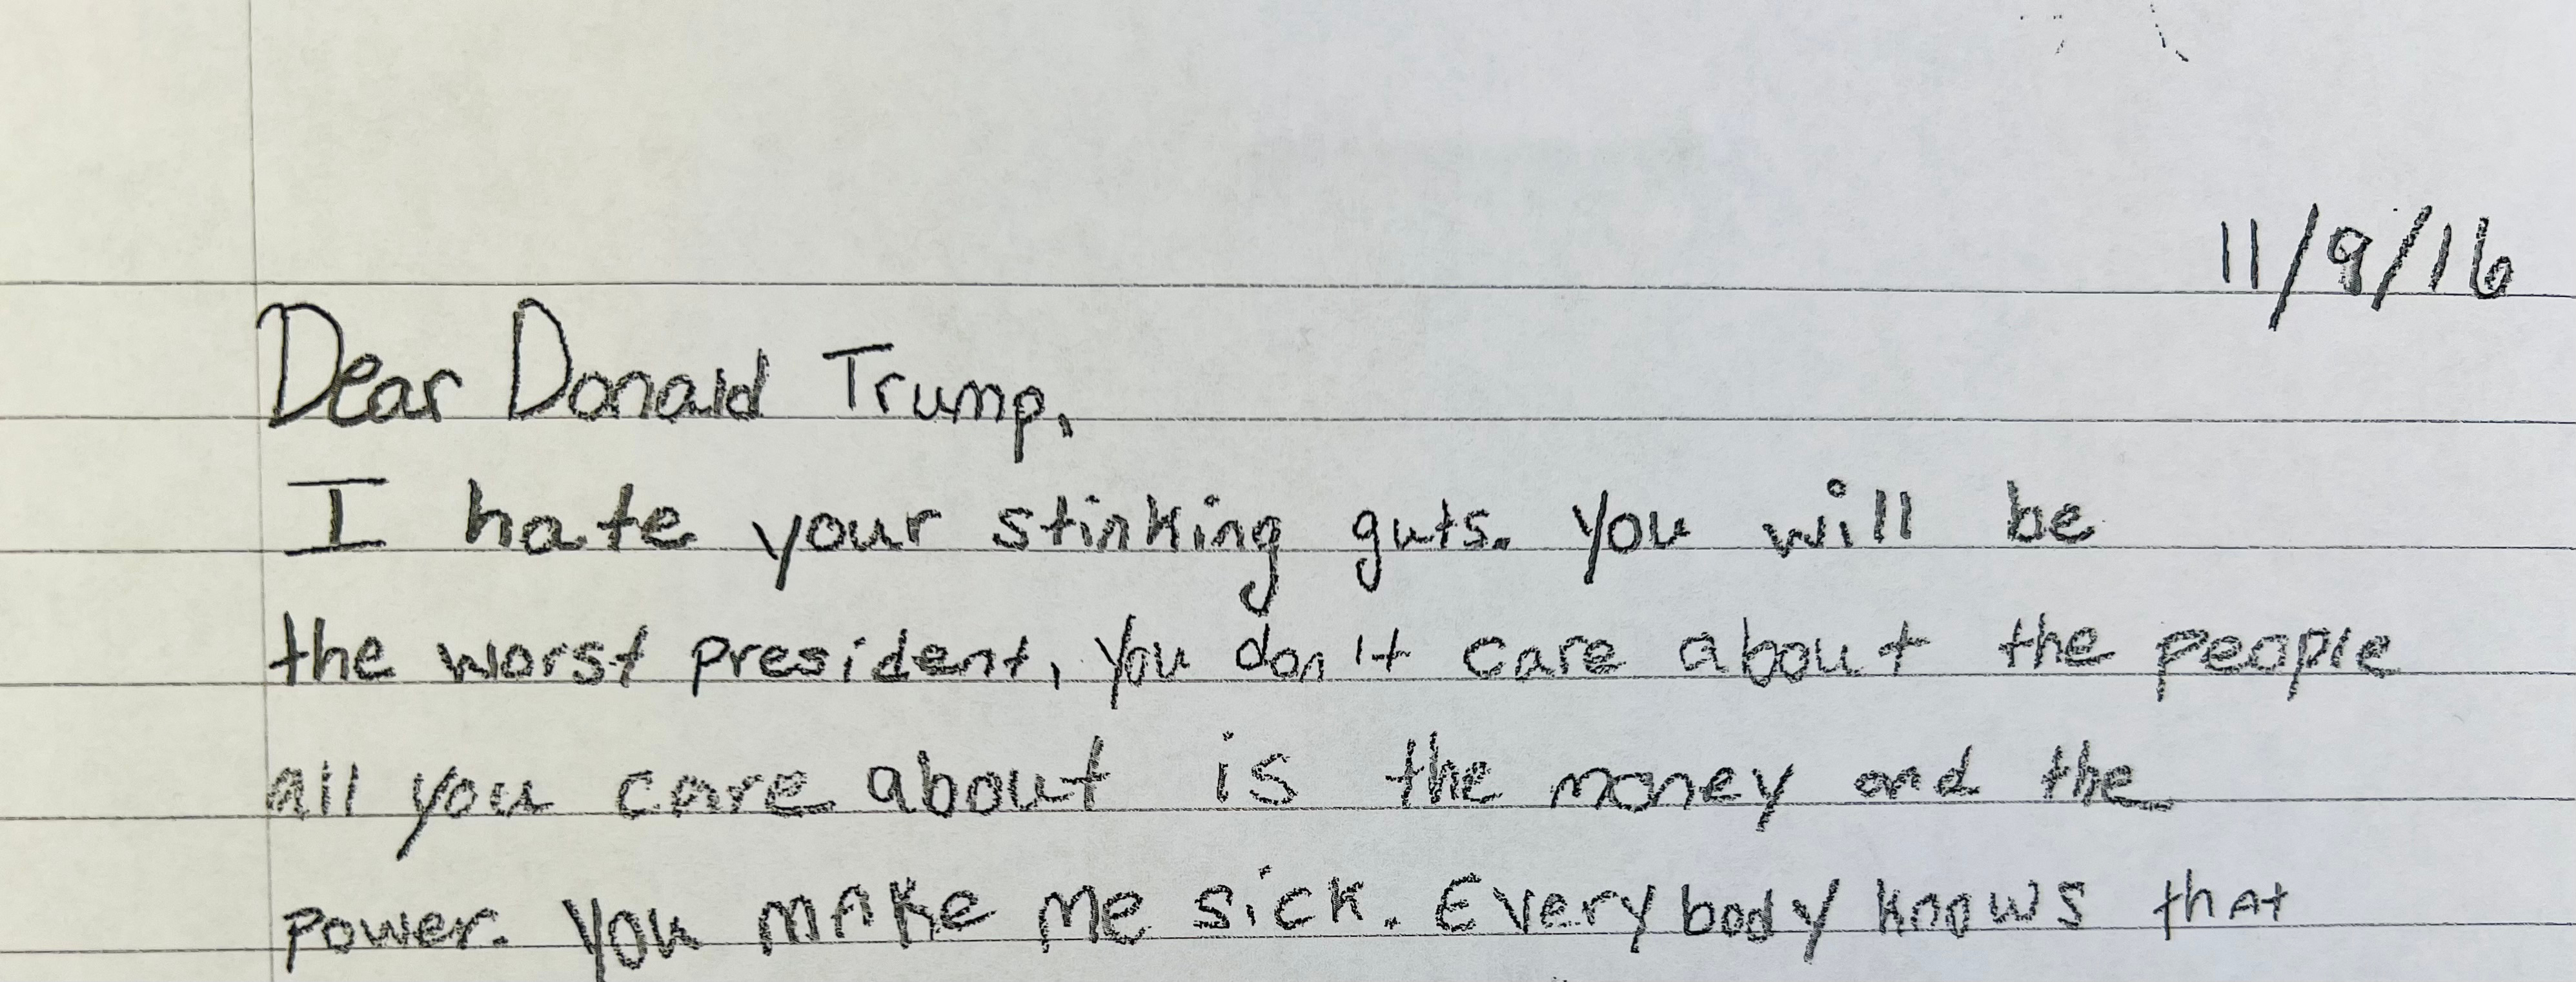 11/9/16
Dear Donald Trump,
I hate your stinking guts. You will be
the worst president, you don't care about the people
all you care about is the money and the
power. You make me sick. Everybody knows that